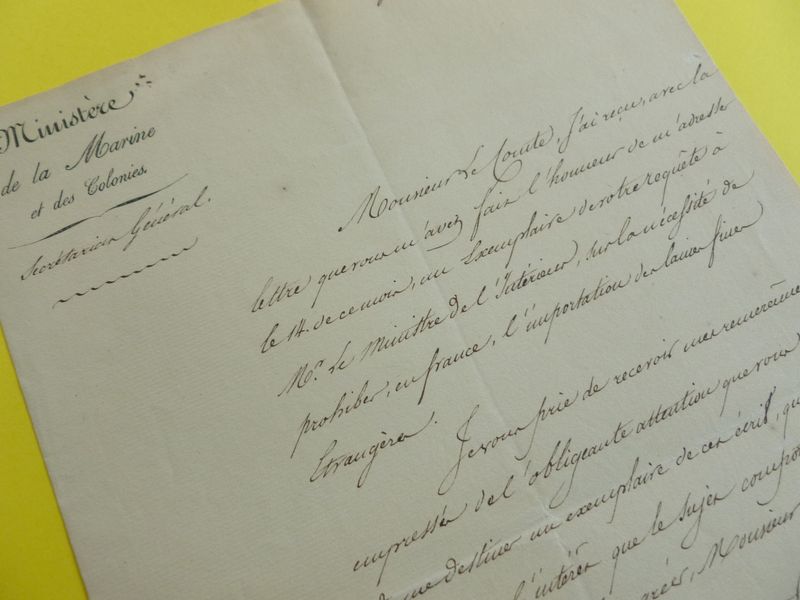 Ministère
de la Marine
et des Colonies.
Secrétariat Général.
Monsieur Le Comte, J'ai reçu, avec la
lettre que vous m'avez fait l'honneur de m'adresser
le 14. de ce mois, un Exemplaire de votre requête à
Mr. Le Ministre de l'Intérieur, sur la nécessité de
prohiber, en france, l'importation des laines fines
Etrangères.
Je vous prie de recevoir mes remercîmens
empressés de l'obligeante attention que vous
me destiner un exemplaire de cet écrit, qu
l'intérêt que le sujet comport
Monsieur